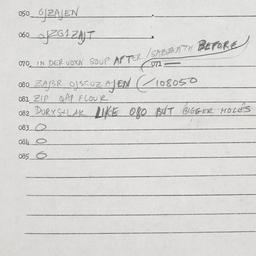 050 OJZAJEN
060
070. IN DER VOXN SOUP AFTER / SABBATH BEFORE
071 —
080 ZAJBR OJSGUZAJEN (/108050
081 ZIP QAP FLOUR
082 DURXSHLAK LIKE 080 BUT BIGGER HOLES
083 O
084 O
085 O